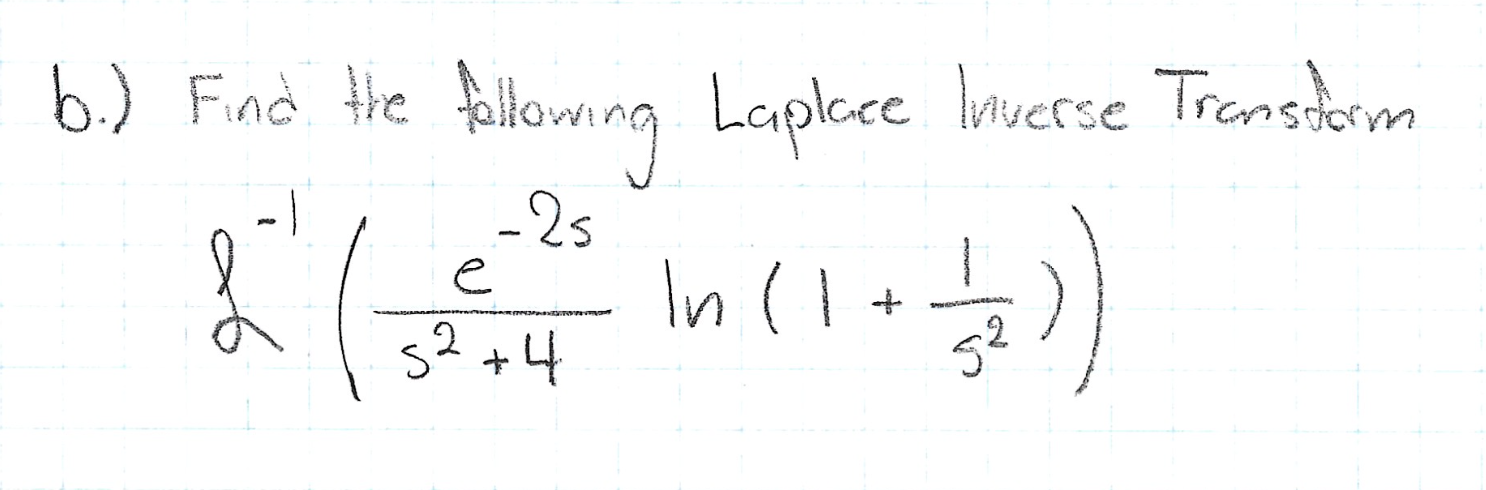 b.) Find the following Laplace Inverse Transform
ℒ⁻¹ ( e^(-2s) / (s² + 4) ln ( 1 + 1/s² ) )